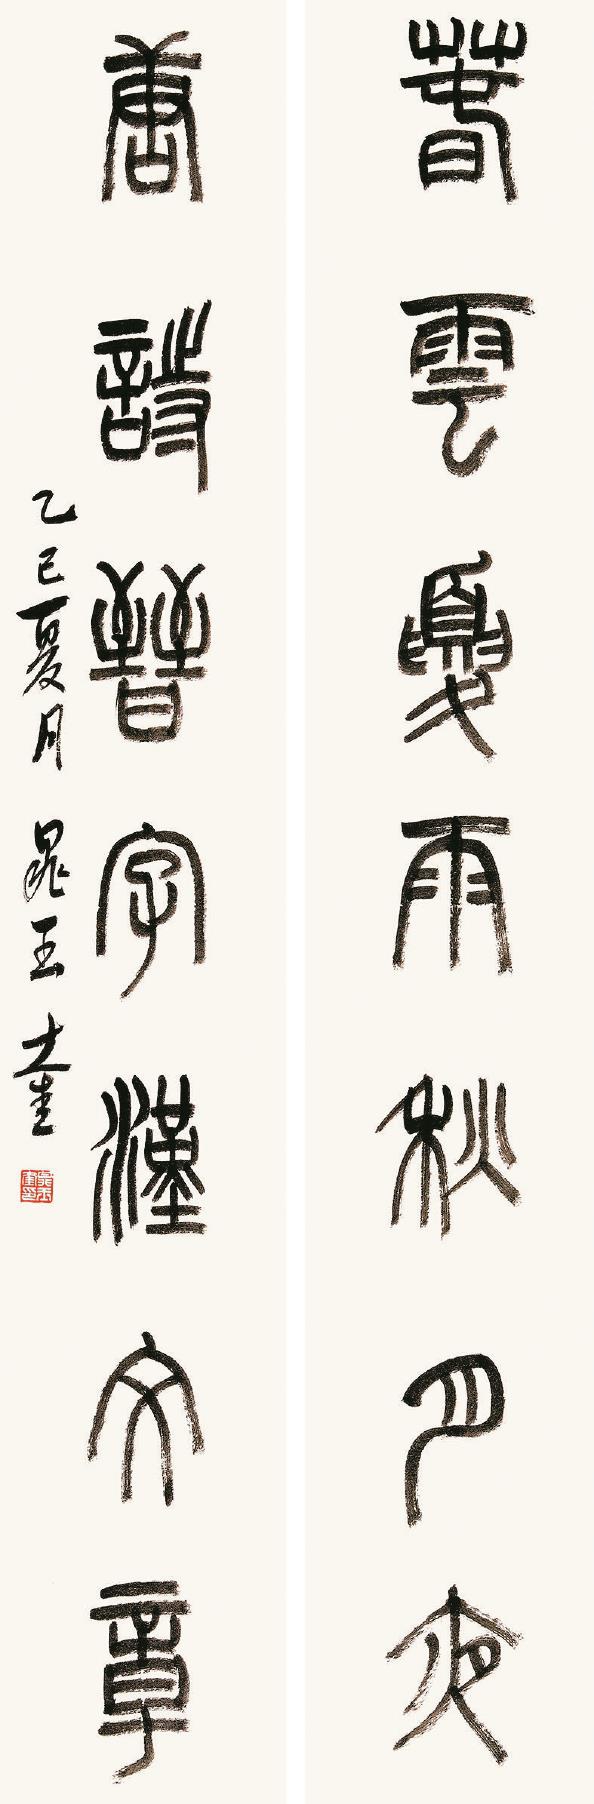 春雲夏雨秋月夜
唐詩晉字漢文章
乙巳夏月 晁玉奎